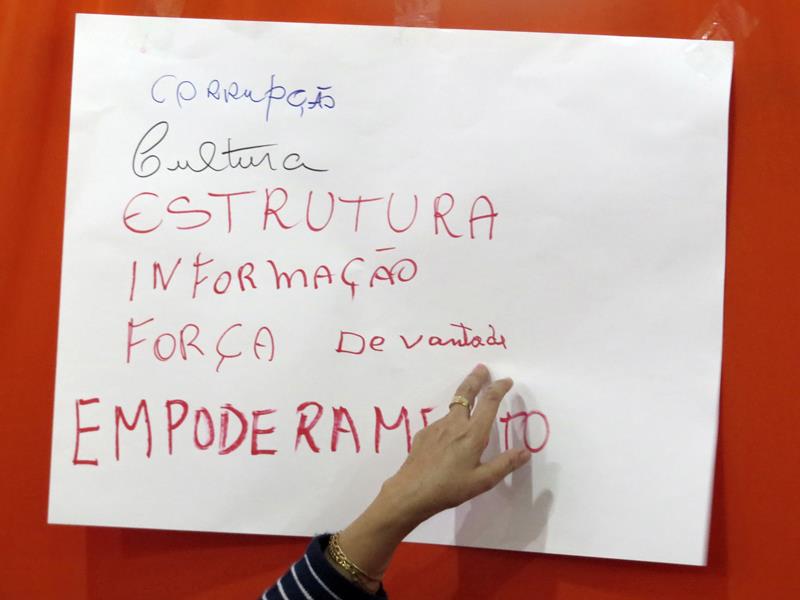 CORRUPÇÃO
Cultura
ESTRUTURA
INFORMAÇÃO
FORÇA De vontade
EMPODERAMENTO